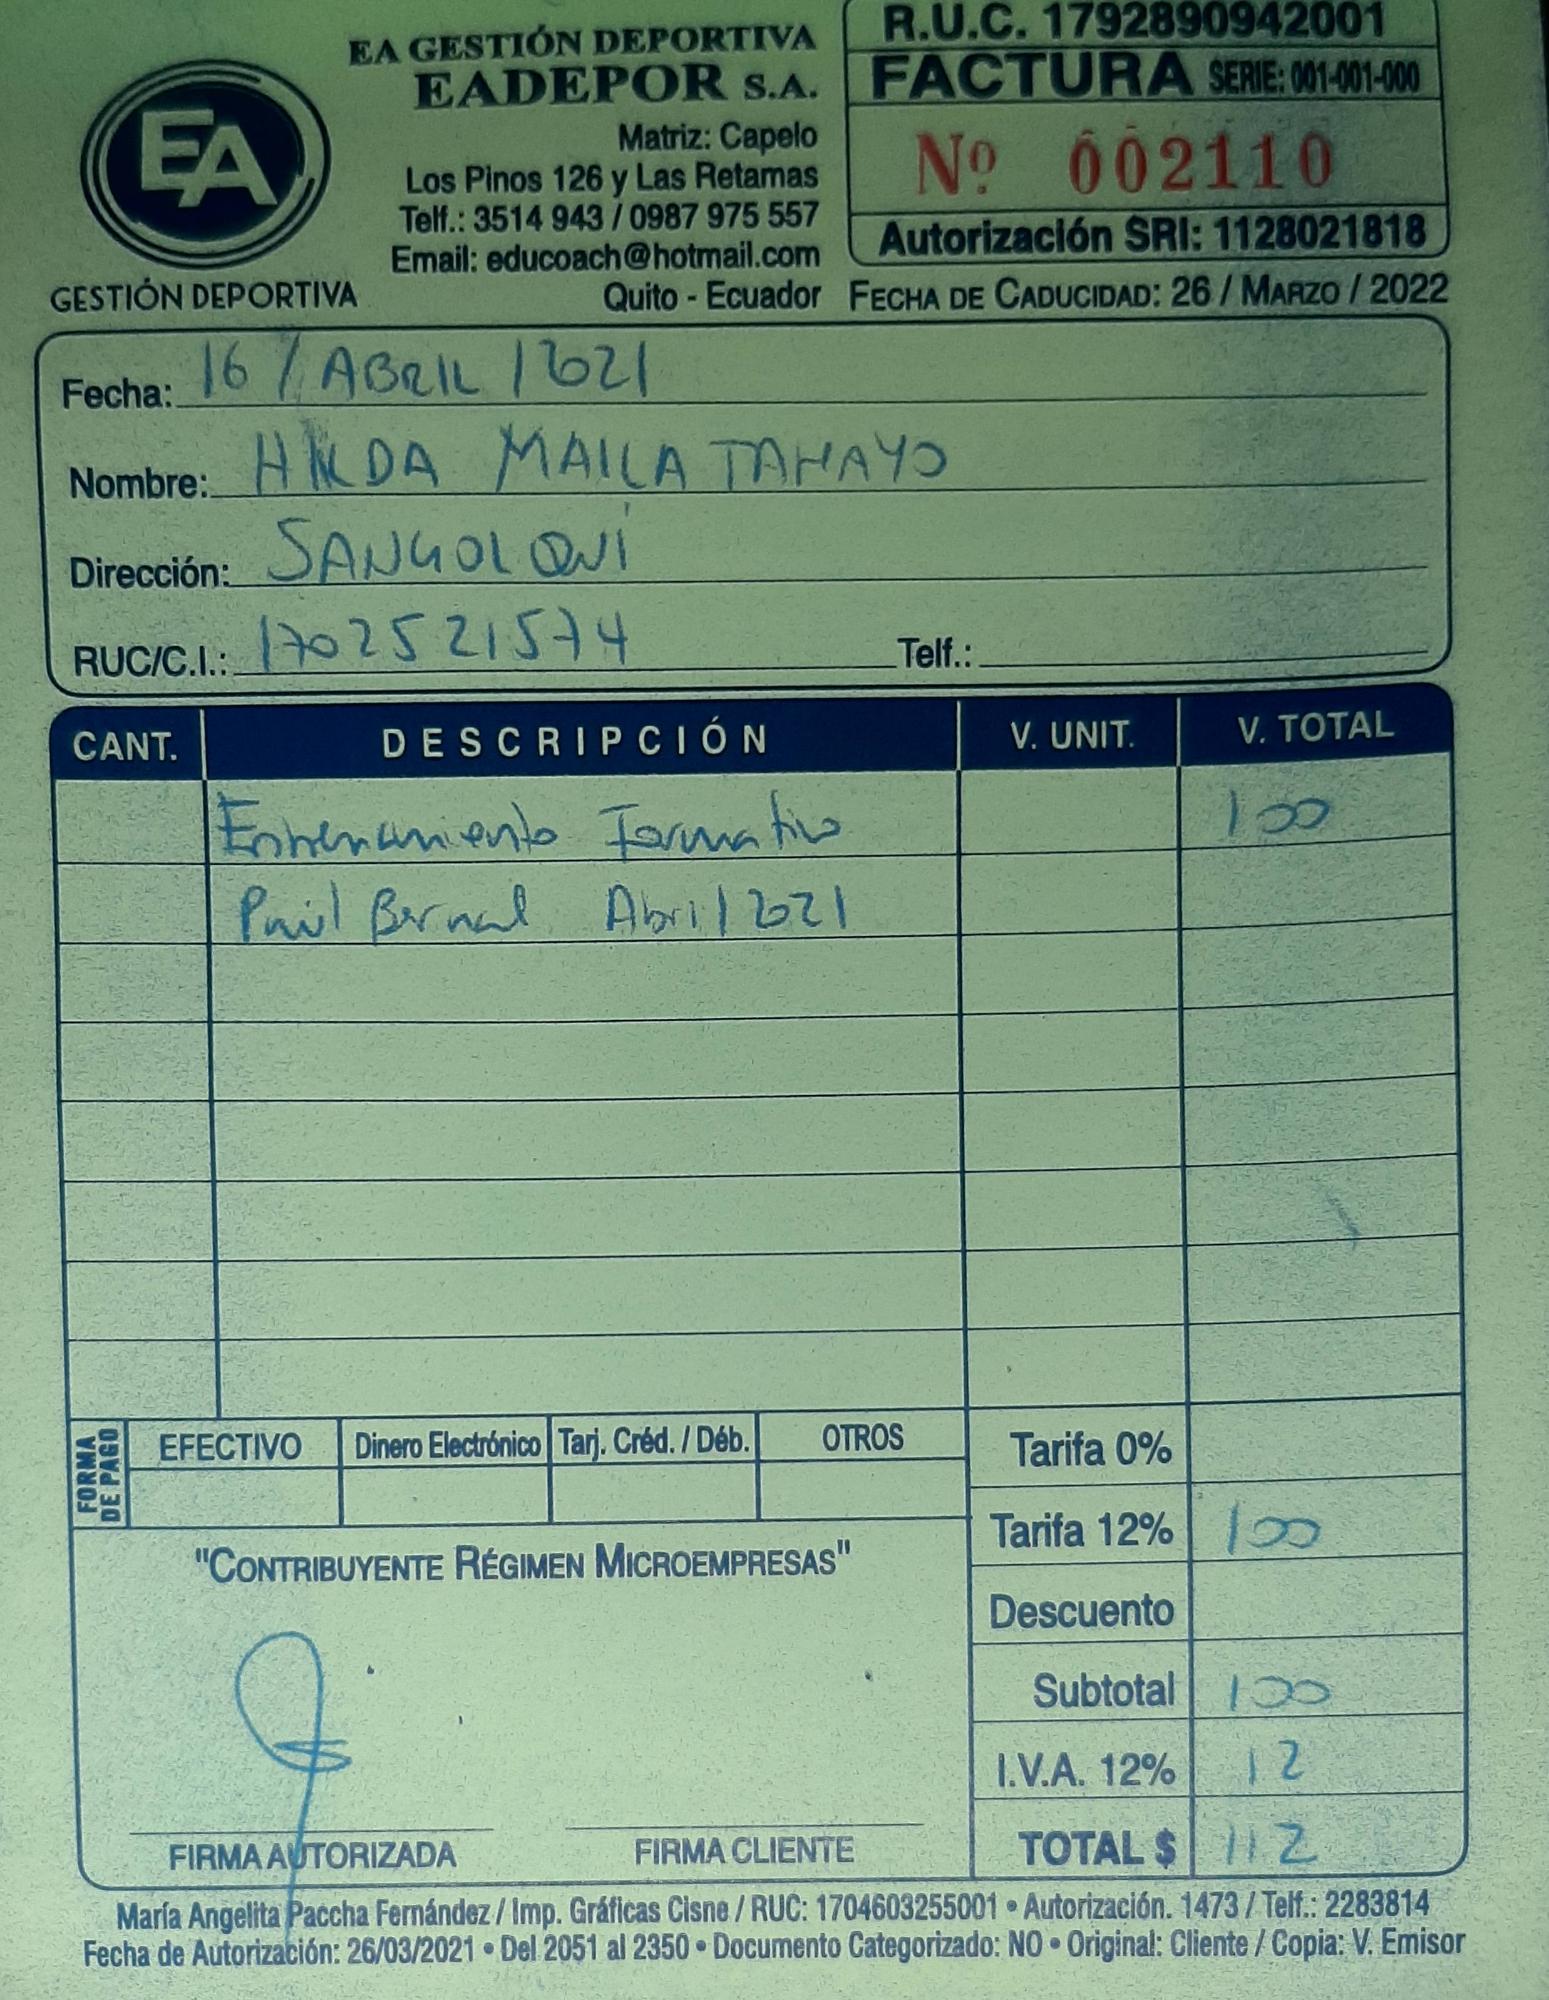 EA GESTIÓN DEPORTIVA
EADEPOR S.A.
Matriz: Capelo
Los Pinos 126 y Las Retamas
Telf.: 3514 943 / 0987 975 557
Email: educoach@hotmail.com
Quito - Ecuador
EA
GESTIÓN DEPORTIVA
R.U.C. 1792890942001
FACTURA SERIE: 001-001-000
Nº 002110
Autorización SRI: 1128021818
FECHA DE CADUCIDAD: 26 / MARZO / 2022
Fecha: 16 / ABRIL / 2021
Nombre: HILDA MAILA TAMAYO
Dirección: SANGOLQUÍ
RUC/C.I.: 1702521574 Telf.:
CANT. DESCRIPCIÓN V. UNIT. V. TOTAL
Entrenamiento Formativo 100
Paúl Bernal Abril 2021
FORMA DE PAGO EFECTIVO Dinero Electrónico Tarj. Créd. / Déb. OTROS
Tarifa 0%
Tarifa 12% 100
"CONTRIBUYENTE RÉGIMEN MICROEMPRESAS"
Descuento
Subtotal 100
I.V.A. 12% 12
FIRMA AUTORIZADA FIRMA CLIENTE TOTAL $ 112
María Angelita Paccha Fernández / Imp. Gráficas Cisne / RUC: 1704603255001 • Autorización. 1473 / Telf.: 2283814
Fecha de Autorización: 26/03/2021 • Del 2051 al 2350 • Documento Categorizado: NO • Original: Cliente / Copia: V. Emisor